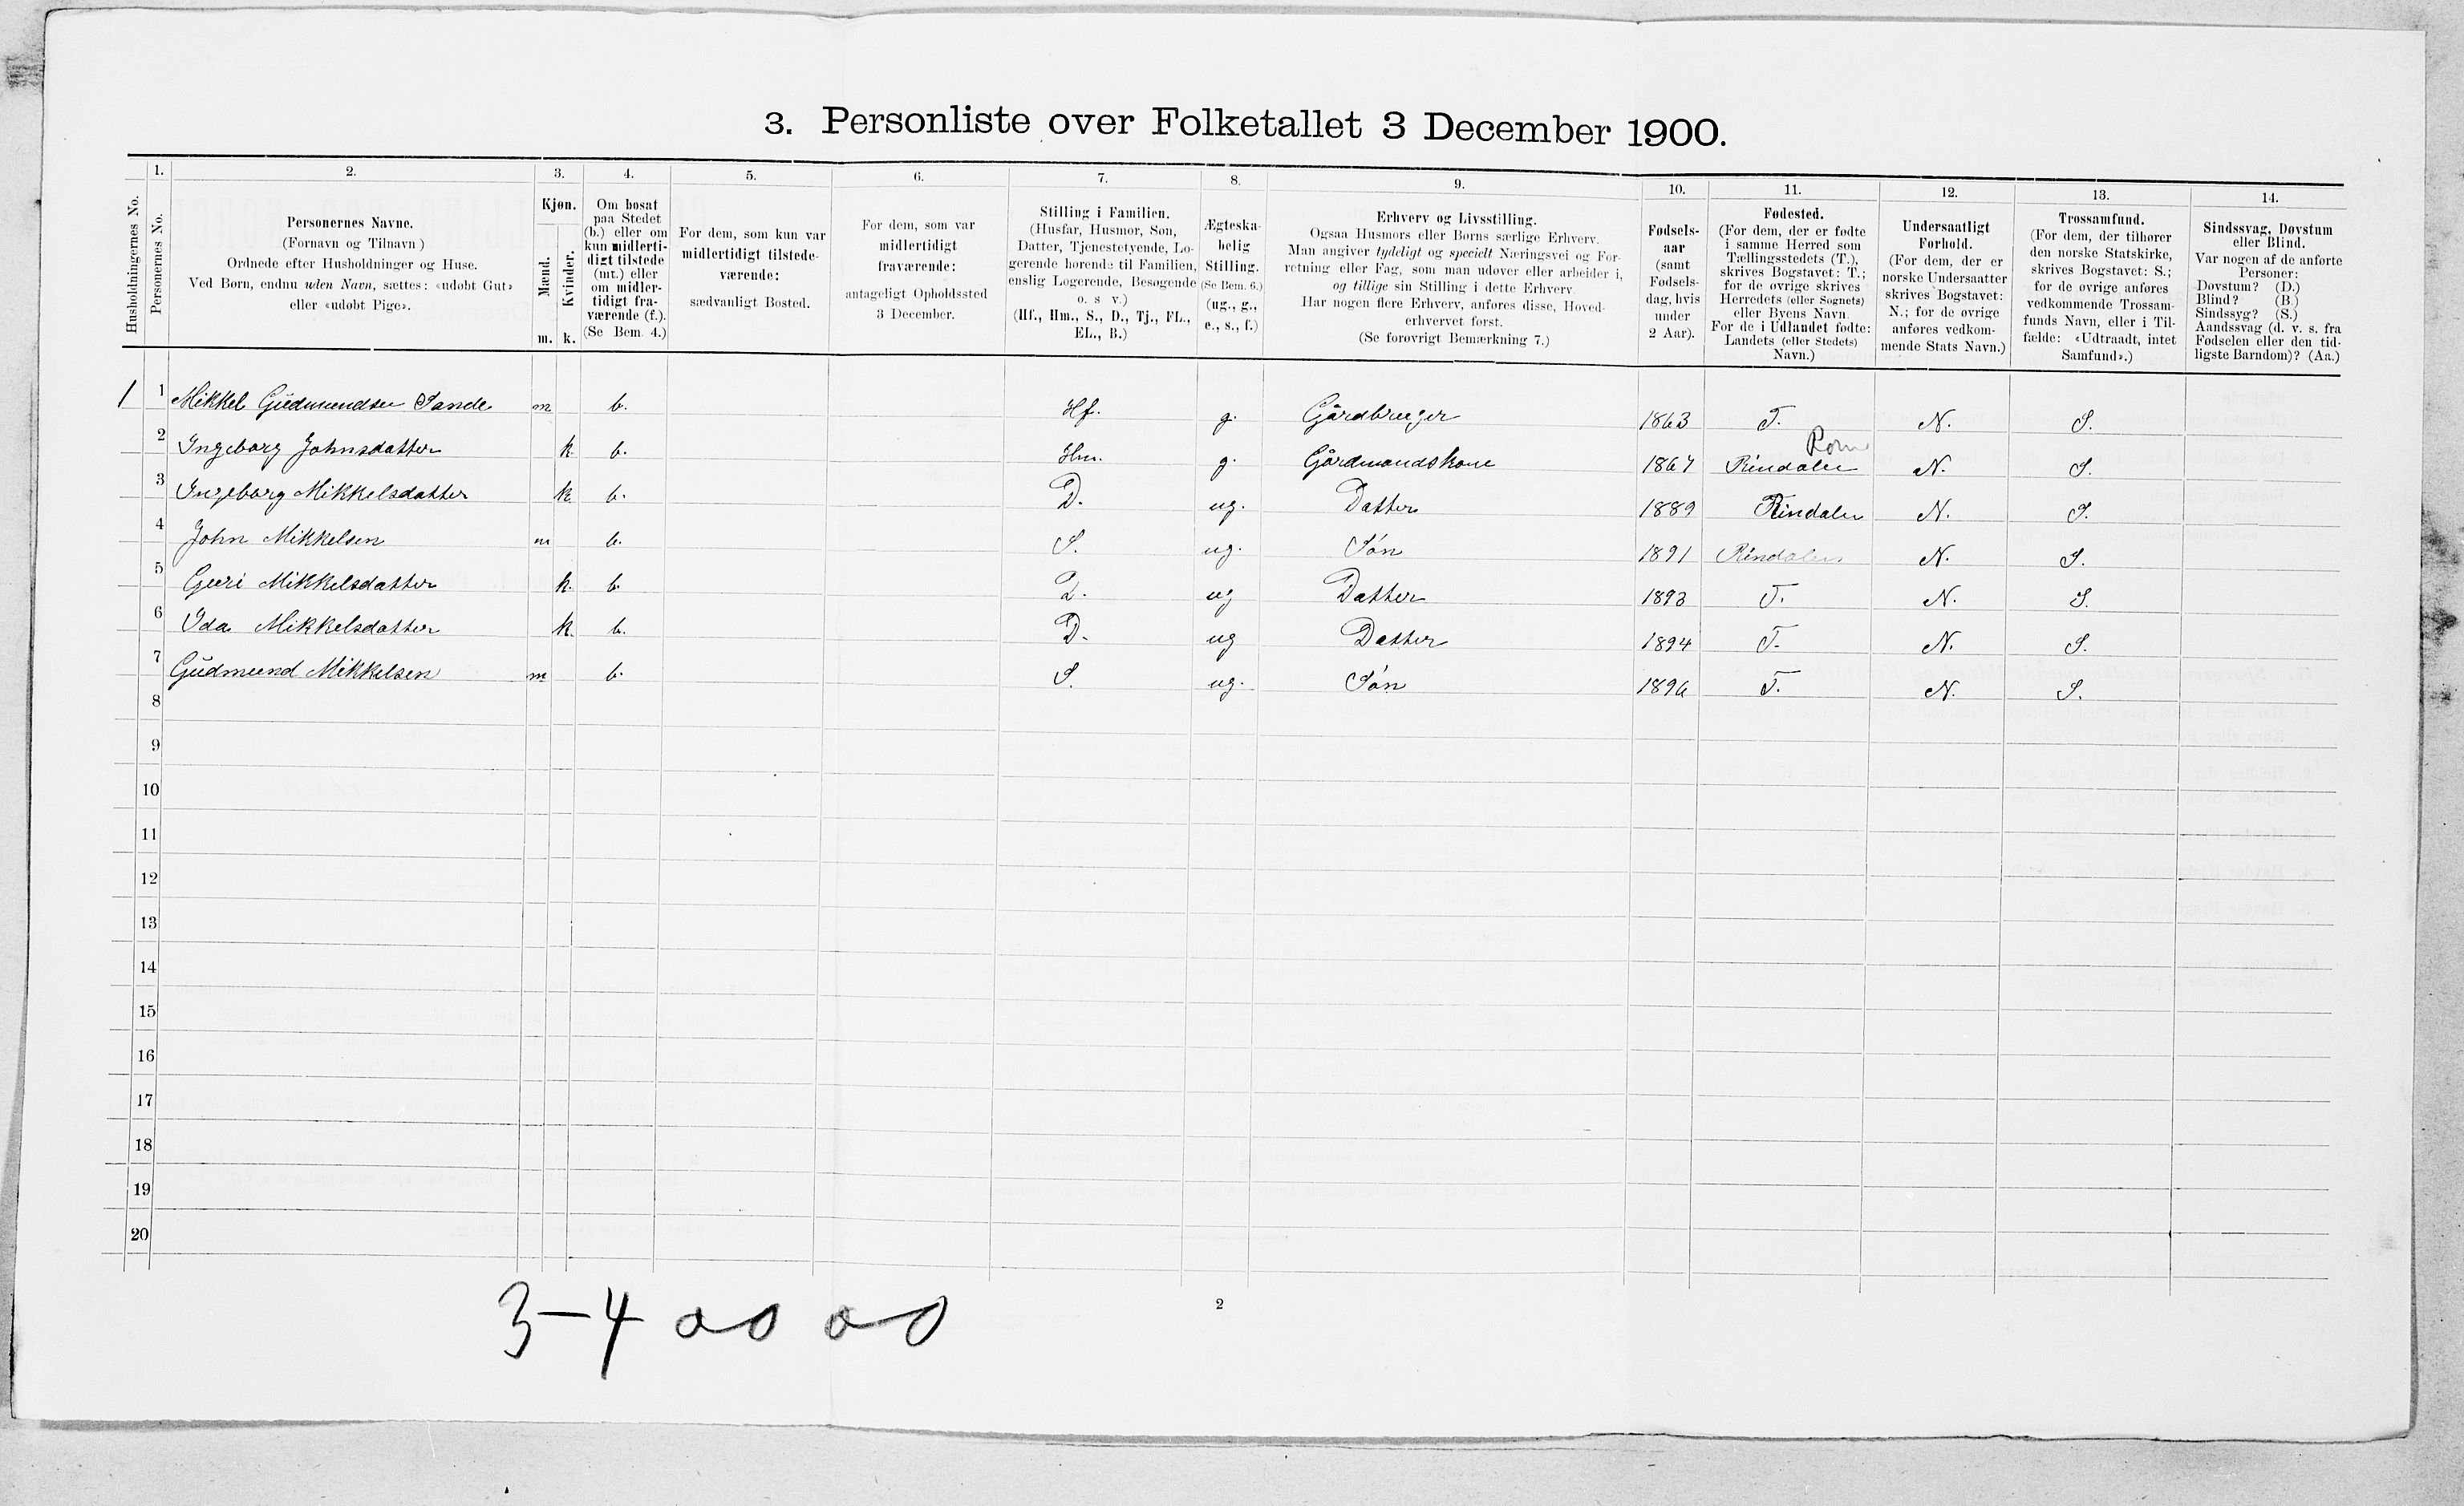 3. Personliste over Folketallet 3 December 1900.
1. 2. 3. 4. 5. 6. 7. 8. 9. 10. 11. 12. 13. 14.
Husholdningernes No.
Personernes No.
Personernes Navne.
(Fornavn og Tilnavn)
Ordnede efter Husholdninger og Huse.
Ved Børn, endnu uden Navn, sættes: «udøbt Gut»
eller «udøbt Pige».
Kjøn.
Mænd.
Kvinder.
m. k.
Om bosat
paa Stedet
(b.) eller om
kun midlerti-
digt tilstede
(mt.) eller
om midler-
tidigt fra-
værende (f.).
(Se Bem. 4.)
For dem, som kun var
midlertidigt tilstede-
værende:
sædvanligt Bosted.
For dem, som var
midlertidigt
fraværende:
antageligt Opholdssted
3 December.
Stilling i Familien.
(Husfar, Husmor, Søn,
Datter, Tjenestetyende, Lo-
gerende hørende til Familien,
enslig Logerende, Besøgende
o. s v.)
(Hf., Hm., S., D., Tj., FL.,
EL., B.)
Ægteska-
belig
Stilling.
(Se Bem. 6.)
(ug., g.,
e., s., f.)
Erhverv og Livsstilling.
Ogsaa Husmors eller Børns særlige Erhverv.
Man angiver tydeligt og specielt Næringsvei og For-
retning eller Fag, som man udøver eller arbeider i,
og tillige sin Stilling i dette Erhverv.
Har nogen flere Erhverv, anføres disse, Hoved-
erhvervet først.
(Se forøvrigt Bemærkning 7.)
Fødsels-
aar
(samt
Fødsels-
dag, hvis
under
2 Aar).
Fødested.
(For dem, der er fødte
i samme Herred som
Tællingsstedets (T.),
skrives Bogstavet: T.;
for de øvrige skrives
Herredets (eller Sognets)
eller Byens Navn.
For de i Udlandet fødte:
Landets (eller Stedets)
Navn.)
Undersaatligt
Forhold.
(For dem, der er
norske Undersaatter
skrives Bogstavet:
N.; for de øvrige
anføres vedkom-
mende Stats Navn.)
Trossamfund.
(For dem, der tilhører
den norske Statskirke,
skrives Bogstavet: S.;
for de øvrige anføres
vedkommende Trossam-
funds Navn, eller i Til-
fælde: «Udtraadt, intet
Samfund».)
Sindssvag, Døvstum
eller Blind.
Var nogen af de anførte
Personer:
Døvstum? (D.)
Blind? (B.)
Sindssyg? (S.)
Aandssvag (d. v. s. fra
Fødselen eller den tid-
ligste Barndom)? (Aa.)
1 1 Mikkel Gudmundsen Sande m b. Hf. g. Gårdbruger 1863 T. N. S.
Rom
2 Ingeborg Johnsdatter k. b. Hm. g. Gårdmandskone 1867 Rindalen N. S.
3 Ingeborg Mikkelsdatter k. b. D. ug. Datter 1889 Rindalen N. S.
4 John Mikkelsen m b. S. ug. Søn 1891 Rindalen. N. S.
5 Guri Mikkelsdatter k. b. D. ug Datter 1893 T. N. S.
6 Ida Mikkelsdatter k. b. D. ug Datter 1894 T. N. S.
7 Gudmund Mikkelsen m b. S. ug. Søn 1896 T. N. S.
8
9
10
11
12
13
14
15
16
17
18
19
20
2
3-4 00 00